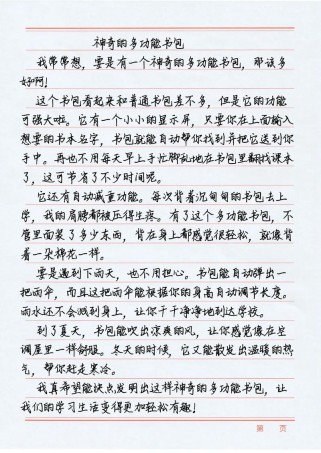 神奇的多功能书包
我常常想，要是有一个神奇的多功能书包，那该多
好啊！
这个书包看起来和普通书包差不多，但是它的功能
可强大啦。它有一个小小的显示屏，只要你在上面输入
想要的书本名字，书包就能自动帮你找到并把它送到你
手中。再也不用每天早上手忙脚乱地在书包里翻找课本
了，这可节省了不少时间呢。
它还有自动减重功能。每次背着沉甸甸的书包去上
学，我的肩膀都被压得生疼。有了这个多功能书包，不
管里面装了多少东西，背在身上都感觉很轻松，就像背
着一朵棉花一样。
要是遇到下雨天，也不用担心。书包能自动弹出一
把雨伞，而且这把雨伞能根据你的身高自动调节长度。
雨水还不会溅到身上，让你干干净净地到达学校。
到了夏天，书包能吹出凉爽的风，让你感觉像在空
调屋里一样舒服。冬天的时候，它又能散发出温暖的热
气，帮你赶走寒冷。
我真希望能快点发明出这样神奇的多功能书包，让
我们的学习生活变得更加轻松有趣！
第 页